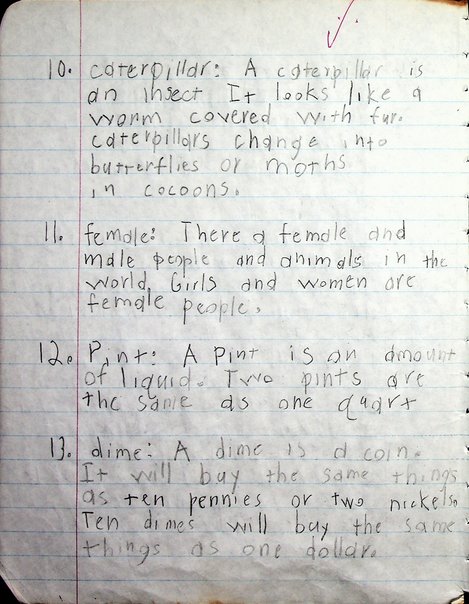 10. caterpillar: A caterpillar is
an insect It looks like a
worm covered with fur.
caterpillars change into
butterflies or moths
in cocoons.
11. female: There a female and
male people and animals in the
world. Girls and women are
female people.
12. Pint: A pint is an amount
of liquid. Two pints are
the same as one quart
13. dime: A dime is a coin.
It will buy the same things
as ten pennies or two nickels.
Ten dimes will buy the same
things as one dollar.